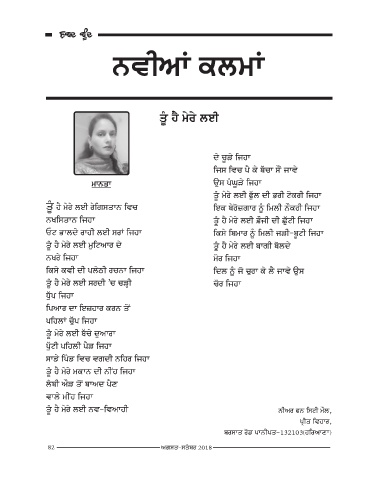 ਸ਼ਬਦ ਬੂੰਦ
ਨਵੀਆਂ ਕਲਮਾਂ
ਤੂੰ ਹੈ ਮੇਰੇ ਲਈ
ਮਾਨਤਾ
ਤੂੰ ਹੈ ਮੇਰੇ ਲਈ ਰੇਗਿਸਤਾਨ ਵਿਚ
ਨਖਸਿਤਾਨ ਜਿਹਾ
ਓਟ ਭਾਲਦੇ ਰਾਹੀ ਲਈ ਸਰਾਂ ਜਿਹਾ
ਤੂੰ ਹੈ ਮੇਰੇ ਲਈ ਮੁਟਿਆਰ ਦੇ
ਨਖਰੇ ਜਿਹਾ
ਕਿਸੇ ਕਵੀ ਦੀ ਪਲੇਠੀ ਰਚਨਾ ਜਿਹਾ
ਤੂੰ ਹੈ ਮੇਰੇ ਲਈ ਸਰਦੀ 'ਚ ਚੜ੍ਹੀ
ਧੁੱਪ ਜਿਹਾ
ਪਿਆਰ ਦਾ ਇਜ਼ਹਾਰ ਕਰਨ ਤੋਂ
ਪਹਿਲਾਂ ਚੁੱਪ ਜਿਹਾ
ਤੂੰ ਮੇਰੇ ਲਈ ਬੱਚੇ ਦੁਆਰਾ
ਪੁੱਟੀ ਪਹਿਲੀ ਪੈੜ ਜਿਹਾ
ਸਾਡੇ ਪਿੰਡ ਵਿਚ ਵਗਦੀ ਨਹਿਰ ਜਿਹਾ
ਤੂੰ ਹੈ ਮੇਰੇ ਮਕਾਨ ਦੀ ਨੀਂਹ ਜਿਹਾ
ਲੰਬੀ ਔੜ ਤੋਂ ਬਾਅਦ ਪੈਣ
ਵਾਲੇ ਮੀਂਹ ਜਿਹਾ
ਤੂੰ ਹੈ ਮੇਰੇ ਲਈ ਨਵ-ਵਿਆਹੀ
ਦੇ ਚੂੜੇ ਜਿਹਾ
ਜਿਸ ਵਿਚ ਪੈ ਕੇ ਬੱਚਾ ਸੌਂ ਜਾਵੇ
ਉਸ ਪੰਘੂੜੇ ਜਿਹਾ
ਤੂੰ ਮੇਰੇ ਲਈ ਫੁੱਲ ਦੀ ਭਰੀ ਟੋਕਰੀ ਜਿਹਾ
ਇਕ ਬੇਰੋਜ਼ਗਾਰ ਨੂੰ ਮਿਲੀ ਨੌਕਰੀ ਜਿਹਾ
ਤੂੰ ਹੈ ਮੇਰੇ ਲਈ ਫ਼ੌਜੀ ਦੀ ਛੁੱਟੀ ਜਿਹਾ
ਕਿਸੇ ਬਿਮਾਰ ਨੂੰ ਮਿਲੀ ਜੜੀ-ਬੂਟੀ ਜਿਹਾ
ਤੂੰ ਹੈ ਮੇਰੇ ਲਈ ਬਾਗੀਂ ਬੋਲਦੇ
ਮੋਰ ਜਿਹਾ
ਦਿਲ ਨੂੰ ਜੋ ਚੁਰਾ ਕੇ ਲੈ ਜਾਵੇ ਉਸ
ਚੋਰ ਜਿਹਾ
ਨੀਅਰ ਫਨ ਸਿਟੀ ਮੌਲ,
ਪ੍ਰੀਤ ਵਿਹਾਰ,
ਬਰਸਾਤ ਰੋਡ ਪਾਨੀਪਤ-132103(ਹਰਿਆਣਾ)
82
ਅਗਸਤ-ਸਤੰਬਰ 2018